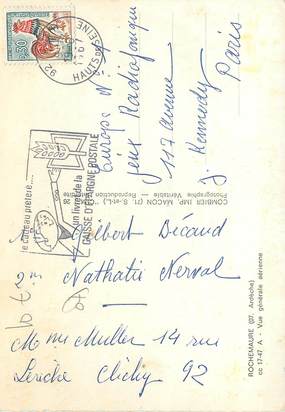 Europe N°
jeux Radiophonique
117 Avenue
J. Kennedy
Paris
0,30
92
1967
HAUTS DE SEINE
le cadeau préféré...
un livret de la
CAISSE D'ÉPARGNE POSTALE
COMBIER IMP. MACON (71 S.-et-L.)
Photographie Véritable - Reproduction interdite
Gilbert Bécaud
2m Nathalie Nerval
Mme Muller 14 rue
Leriche Clichy 92
ROCHEMAURE (07. Ardèche)
cc 17-47 A - Vue générale aérienne